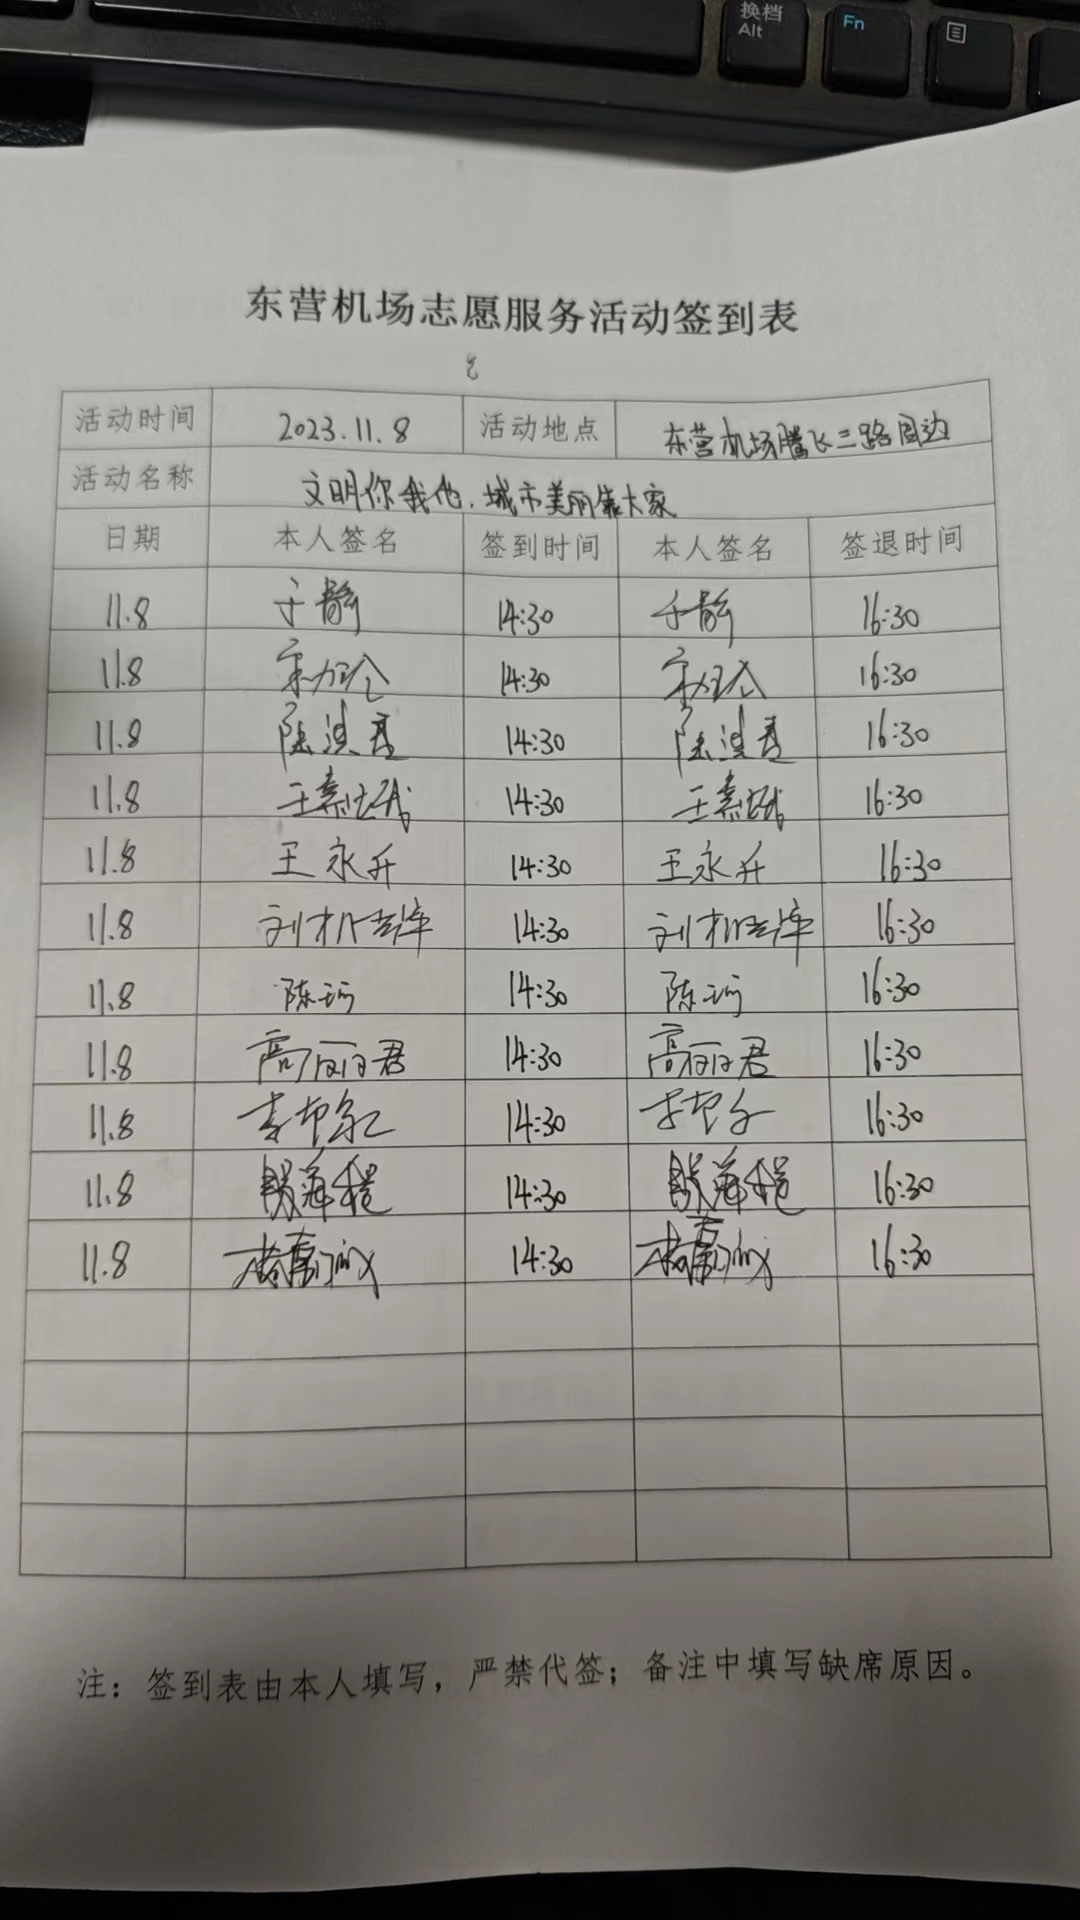 换档
Alt
Fn
东营机场志愿服务活动签到表
活动时间 2023.11.8 活动地点 东营机场腾飞三路周边
活动名称 文明你我他.城市美丽靠大家
日期 本人签名 签到时间 本人签名 签退时间
11.8 于静 14:30 于静 16:30
11.8 14:30 16:30
11.8 陈淇君 14:30 陈淇君 16:30
11.8 王素 14:30 王素 16:30
11.8 王永升 14:30 王永升 16:30
11.8 刘 14:30 刘 16:30
11.8 陈珂 14:30 陈珂 16:30
11.8 高丽君 14:30 高丽君 16:30
11.8 14:30 16:30
11.8 14:30 16:30
11.8 14:30 16:30
注：签到表由本人填写，严禁代签；备注中填写缺席原因。